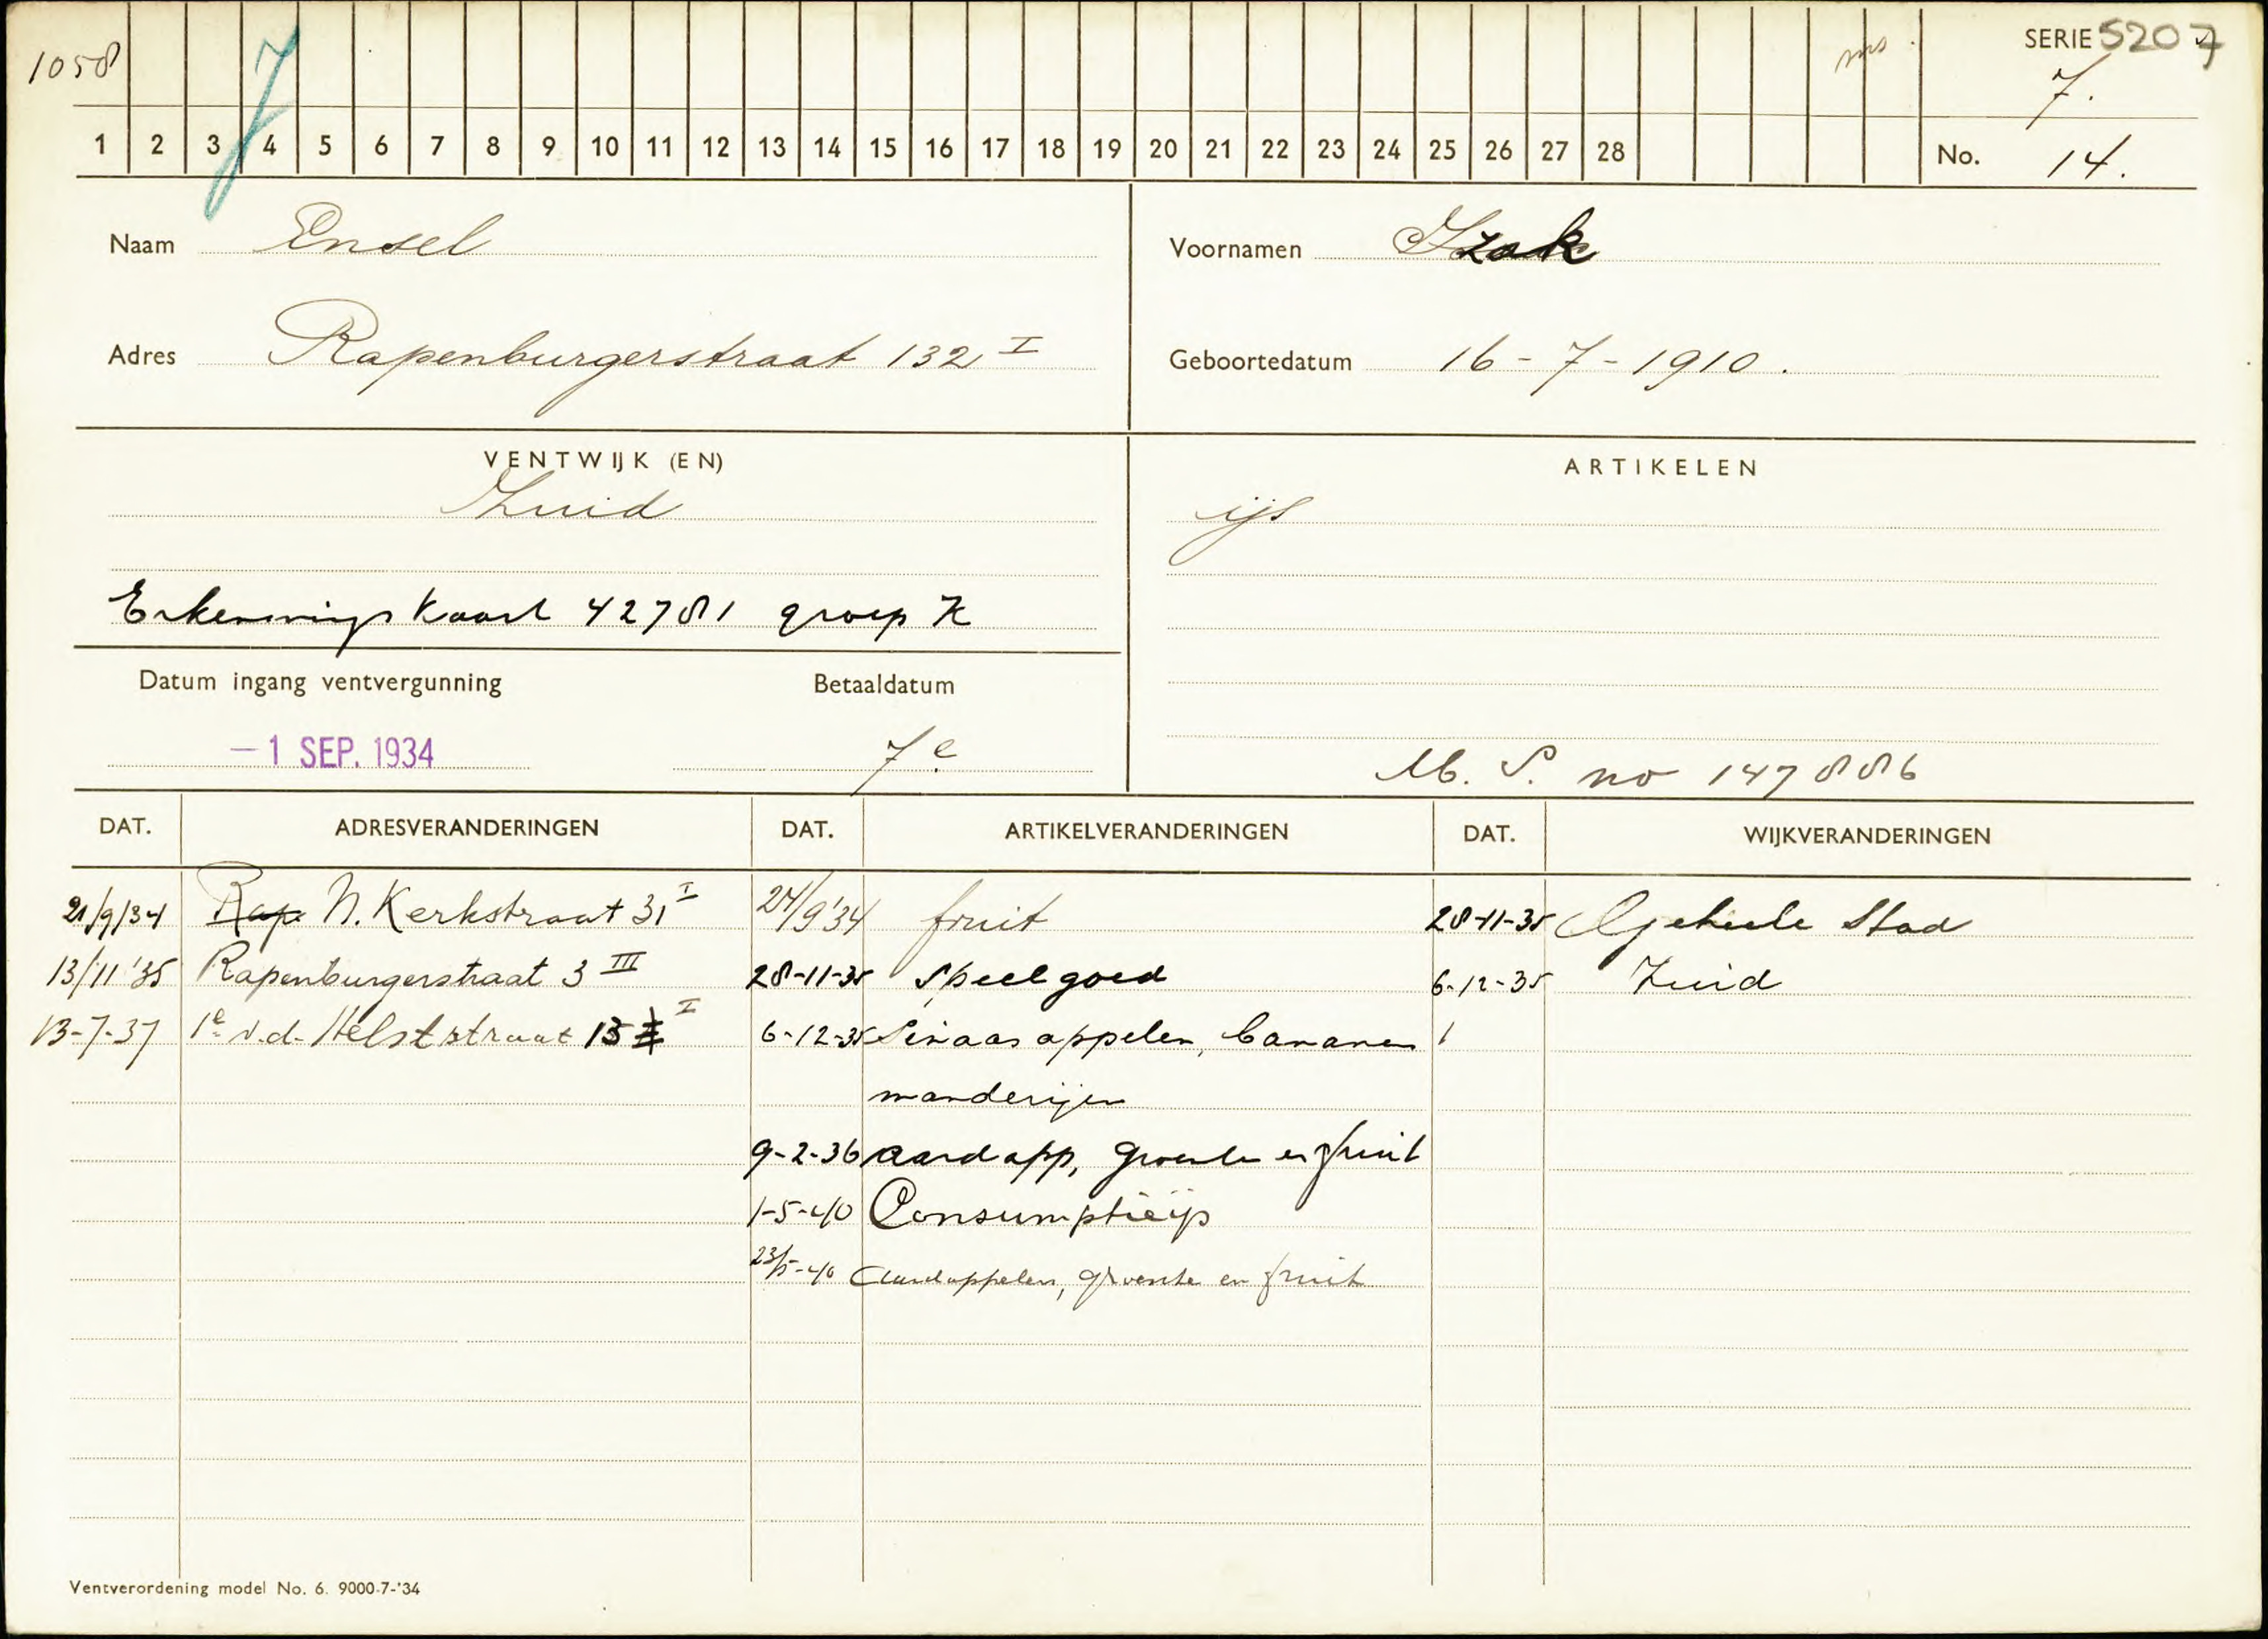 1058 7 ms. SERIE 5207
7.
1 2 3 4 5 6 7 8 9 10 11 12 13 14 15 16 17 18 19 20 21 22 23 24 25 26 27 28 No. 14.
Naam Ensel Voornamen Izak
Adres Rapenburgerstraat 132 I Geboortedatum 16-7-1910.
VENTWIJK (EN) ARTIKELEN
Zuid ijs
Erkennings kaart 42781 groep K
Datum ingang ventvergunning Betaaldatum
-1 SEP. 1934 7e
M. S. no 147886
DAT. ADRESVERANDERINGEN DAT. ARTIKELVERANDERINGEN DAT. WIJKVERANDERINGEN
21/9/34 Rap N. Kerkstraat 31 I 24/9'34 fruit 28-11-35 Geheele Stad
13/11'35 Rapenburgerstraat 3 III 28-11-35 Speelgoed 6-12-35 Zuid
13-7-37 1e v.d. Helststraat 13 I 6-12-35 Sinaasappelen, bananen
manderijen
9-2-36 aardapp, groente en fruit
1-5-40 Consumptieijs
23/5-40 Aardappelen, groente en fruit
Ventverordening model No. 6. 9000-7-'34